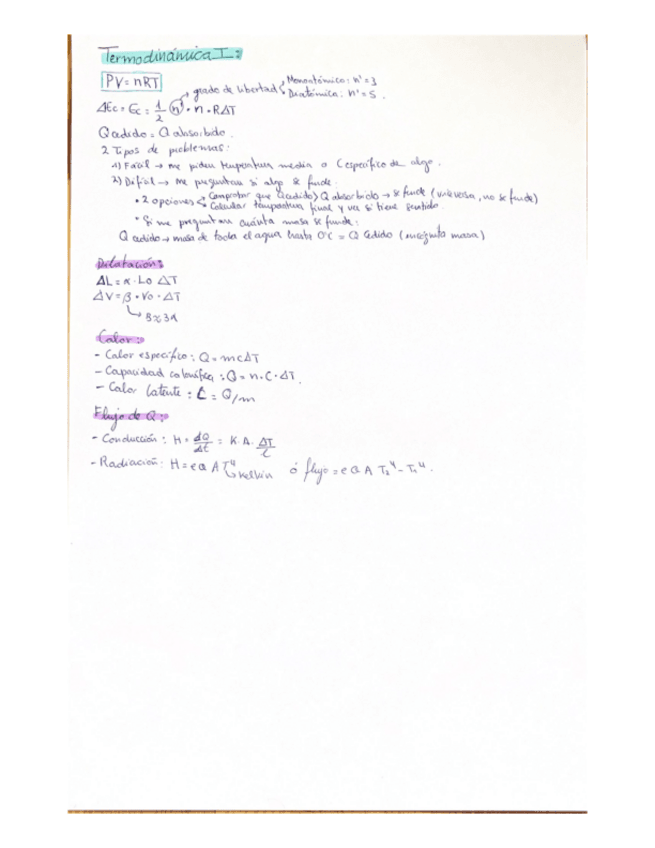 Termodinámica I:
PV = nRT
→ grado de libertad
Monoatómico: n' = 3
Diatómico: n' = 5.
ΔEc = Ec = 1/2 n' · n · RΔT
Qcedido = Q absorbido.
2 Tipos de problemas:
1) Fácil → me piden temperatura media o C específico de algo.
2) Difícil → me preguntan si algo se funde:
• 2 opciones
Comprobar que Qcedido > Q absorbido → se funde (viceversa, no se funde)
Calcular temperatura final y ver si tiene sentido.
• Si me preguntan cuánta masa se funde:
Q cedido → masa de toda el agua hasta 0ºC = Q cedido (incógnita masa)
Dilatación:
ΔL = α · Lo ΔT
ΔV = β · Vo · ΔT
β ≈ 3α
Calor:
- Calor específico: Q = mcΔT
- Capacidad calorífica: Q = n · C · ΔT.
- Calor latente: L = Q/m
Flujo de Q:
- Conducción: H = dQ/dt = K · A · ΔT/L
- Radiación: H = e Q A T⁴ → Kelvin ó flujo = e Q A T₂⁴ - T₁⁴.